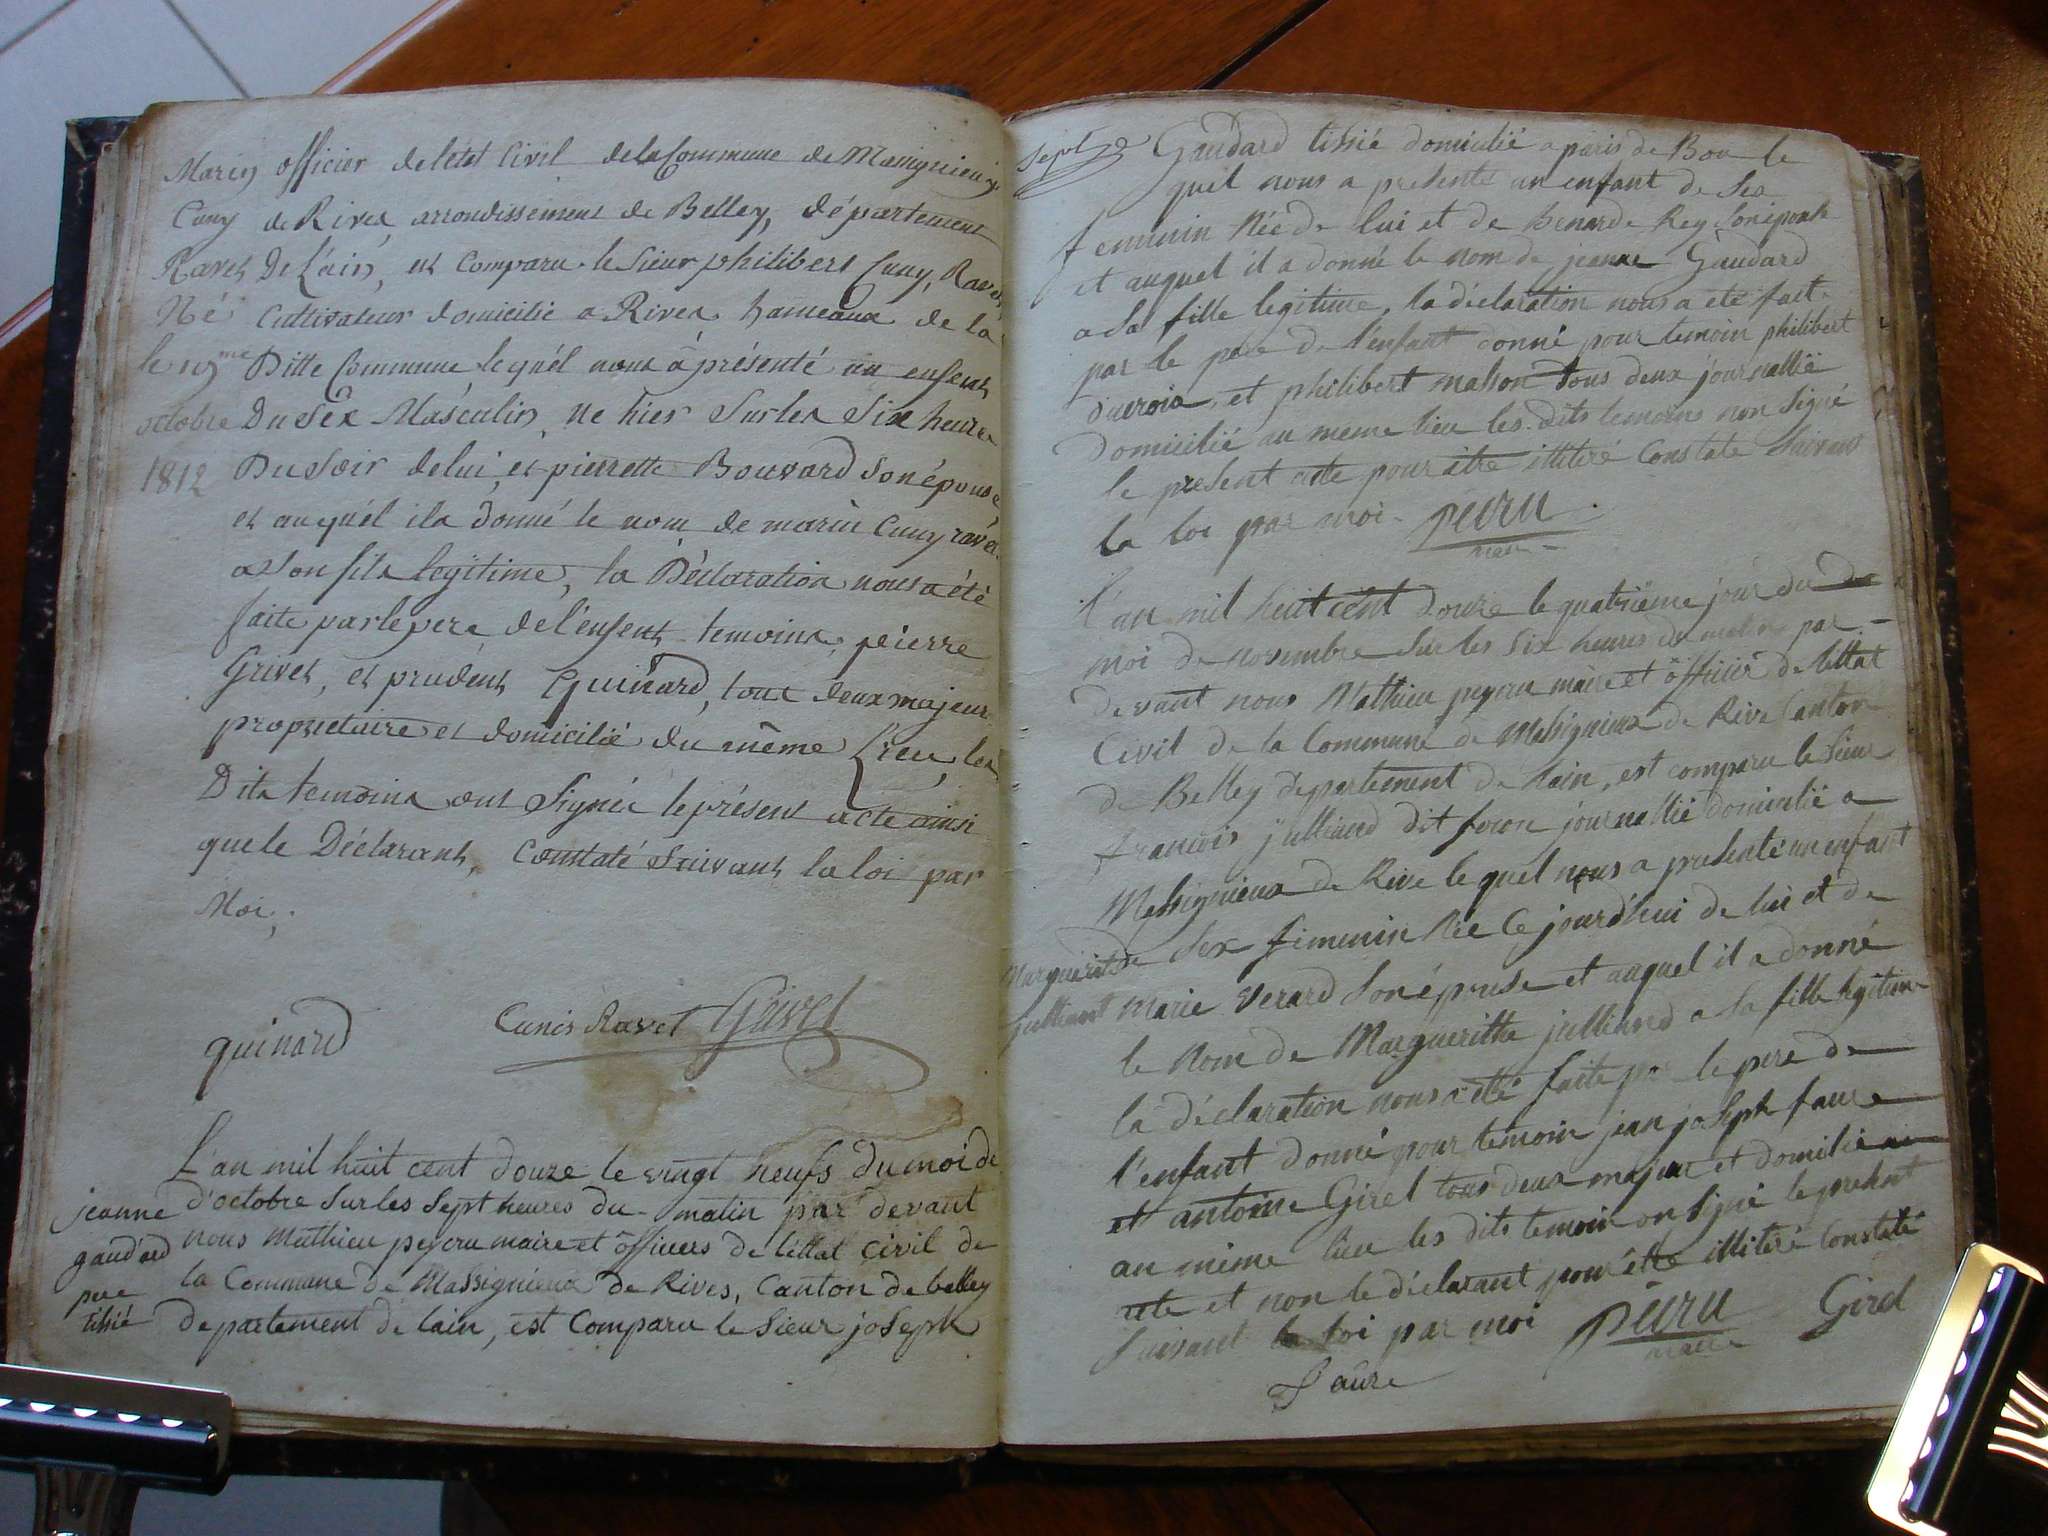 Marin officier de l'état Civil de la Commune de Massignieu
Cuny de Rives, arrondissement de Belley, département
Ravet De l'ain, est Comparu le Sieur philibert Cuny, Ravet
Né Cultivateur domicilié a Rives hameaux de la
le Ditte Commune lequél nous à présenté un enfent
octobre Du Sex Masculin, ne hier Sur les Six heures
1812 Du Soir de lui, et pierrette Bouvard Son épouse
et auquél il a donné le nom de marin Cuny ravet
a Son fils legitime, la Déclaration nous a été
faite par le pere de l'enfent temoins, pierre
Grivet, et prudent Guinard, tous deux majeur
propriétaire et domicilié du même Lieu, les
Dits temoins ont Signée le présent acte ainsi
que le Déclarant, Constaté Suivant la loi par
Moi,
quinard Cunis Ravet Grivet
L'an mil huit cent douze le vingt neufs du moi de
jeanne d'octobre Sur les Sept heures du matin par devant
gaudard nous Mathieu peycru maire et officiers de l'éttat Civil de
pere la Commune de Massignieux de Rives, Canton de belley
tissié departement de lain, est Comparu le Sieur joSeph
Sept
Gaudard tissié domicilié a paris de Bou le
quel nous a presenté un enfant de Sex
femminin Née de lui et de Benarde Rey Son épouse
et auquel il a donné le nom de jeanne Gaudard
a Sa fille legitime, la déclaration nous a été fait
par le pere de l'enfant donné pour temoin philibert
ducroix, et philibert masson tous deux journallié
domicilié au meme lieu les dits temoins non Signé
le present acte pour être illitéré Constate Suivant
la loi par moi peiru
maire
l'an mil huit cent douze le quatriéme jour du
moi de novembre Sur les Six heures du matin par
devant nous Mathieu peycru maire et officié de l'ettat
Civil de la Commune de Massignieux de Rive Canton
de Belley departement de lain, est comparu le Sieur
francois julliand dit journallié domicilié a
Massignieux de Rive le quel nous a presenté un enfant
de Sex femenin Née Ce jourd'hui de lui et de
Marguerithe
julliant
marie Verard Son épouse et auquel il a donné
le Nom de Marguerithe julliand a Sa fille legitime
la déclaration nous a été faite par le pere de
l'enfant donné pour temoin jean joSeph faure
et antoine Girel tous deux majeur et domicilié
au méme lieu les dits temoin on Signé le present
acte et non le déclarant pour étre illitéré Constaté
Suivant la loi par moi peiru Girel
maire
Faure